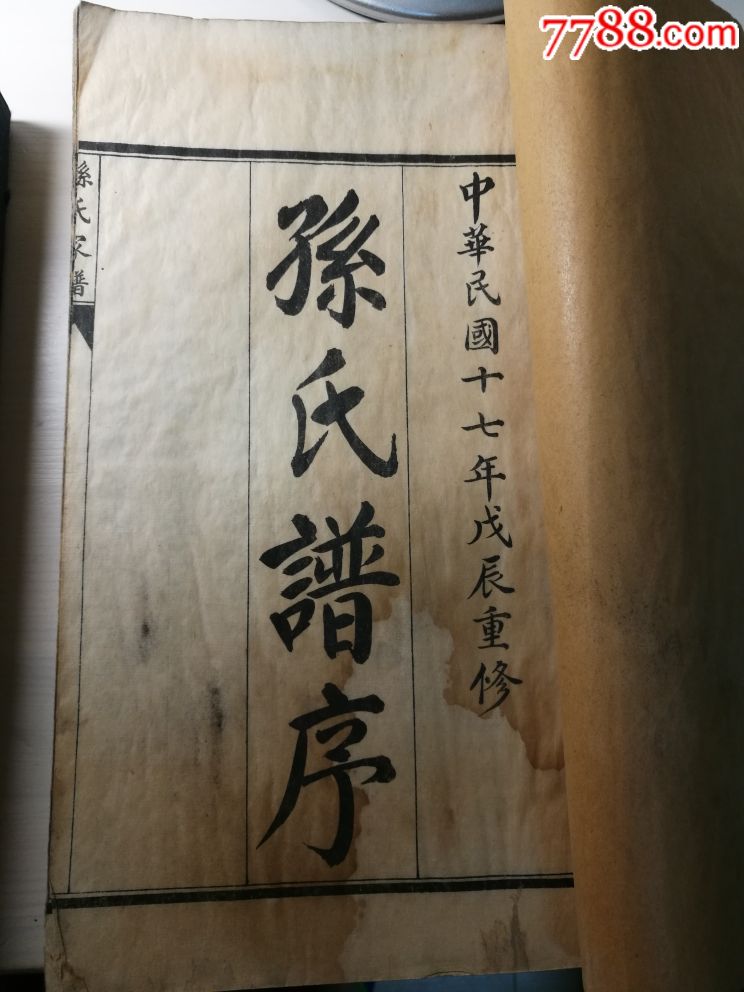 7788.com
中華民國十七年戊辰重修
孫氏譜序
孫氏家譜